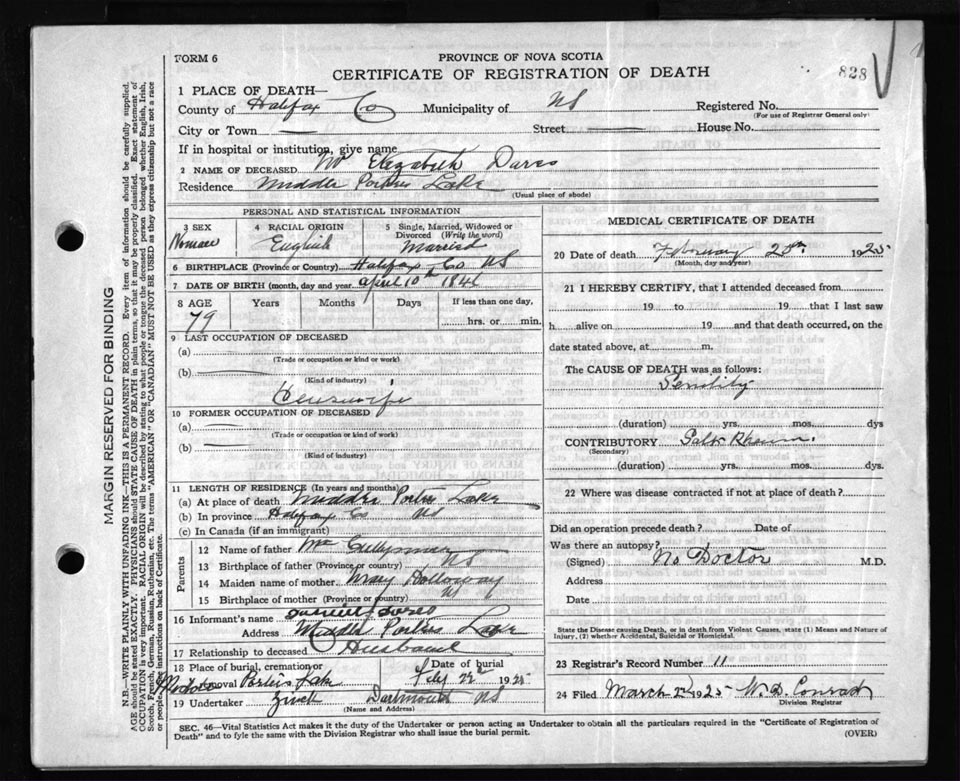 FORM 6
PROVINCE OF NOVA SCOTIA
CERTIFICATE OF REGISTRATION OF DEATH
828
1 PLACE OF DEATH—
County of Halifax Co Municipality of NS Registered No.
(For use of Registrar General only)
City or Town — Street — House No.
If in hospital or institution, give name
2 NAME OF DECEASED Elizabeth Dares
Residence Middle Porters Lake
(Usual place of abode)
PERSONAL AND STATISTICAL INFORMATION
3 SEX 4 RACIAL ORIGIN 5 Single, Married, Widowed or Divorced (Write the word)
English Married
6 BIRTHPLACE (Province or Country) Halifax Co NS
7 DATE OF BIRTH (month, day and year) April 10
8 AGE Years Months Days If less than one day,
79 hrs. or min.
9 LAST OCCUPATION OF DECEASED
(a)
(Trade or occupation or kind or work)
(b)
(Kind of industry)
Housewife
10 FORMER OCCUPATION OF DECEASED
(a) —
(Trade or occupation or kind of work)
(b) —
(Kind of industry)
11 LENGTH OF RESIDENCE (In years and months)
(a) At place of death Middle Porters Lake
(b) In province Halifax Co NS
(c) In Canada (if an immigrant)
Parents
12 Name of father
13 Birthplace of father (Province or country) NS
14 Maiden name of mother Holloway
15 Birthplace of mother (Province or country)
16 Informant's name Dares
Address Middle Porters Lake
17 Relationship to deceased Husband
18 Place of burial, cremation or removal Porters Lake Date of burial 1925
19 Undertaker Zink Dartmouth NS
(Name and Address)
MEDICAL CERTIFICATE OF DEATH
20 Date of death February 1925
(Month, day and year)
21 I HEREBY CERTIFY, that I attended deceased from
19 to 19 that I last saw
h alive on 19 and that death occurred, on the
date stated above, at m.
The CAUSE OF DEATH was as follows:
Senility
(duration) yrs. mos. dys.
CONTRIBUTORY Salt Rheum.
(Secondary)
(duration) yrs. mos. dys.
22 Where was disease contracted if not at place of death?
Did an operation precede death? Date of
Was there an autopsy?
(Signed) No Doctor M.D.
Address
Date
State the Disease causing Death, or in death from Violent Causes, state (1) Means and Nature of Injury, (2) whether Accidental, Suicidal or Homicidal.
23 Registrar's Record Number 11
24 Filed March 1925 W.D. Conrad
Division Registrar
SEC. 46—Vital Statistics Act makes it the duty of the Undertaker or person acting as Undertaker to obtain all the particulars required in the "Certificate of Registration of
Death" and to fyle the same with the Division Registrar who shall issue the burial permit. (OVER)
MARGIN RESERVED FOR BINDING
N.B.—WRITE PLAINLY WITH UNFADING INK—THIS IS A PERMANENT RECORD. Every item of information should be carefully supplied.
AGE should be stated EXACTLY. PHYSICIANS should STATE CAUSE OF DEATH in plain terms, so that it may be properly classified. Exact statement of
OCCUPATION is very important. RACIAL ORIGIN will be described by stating to what people or tongue the deceased person belonged whether English, Irish,
Scotch, French, German, Russian, Ruthenian, etc. The terms "AMERICAN" OR "CANADIAN" MUST NOT BE USED as they express citizenship but not a race
or people. instructions on back of Certificate.